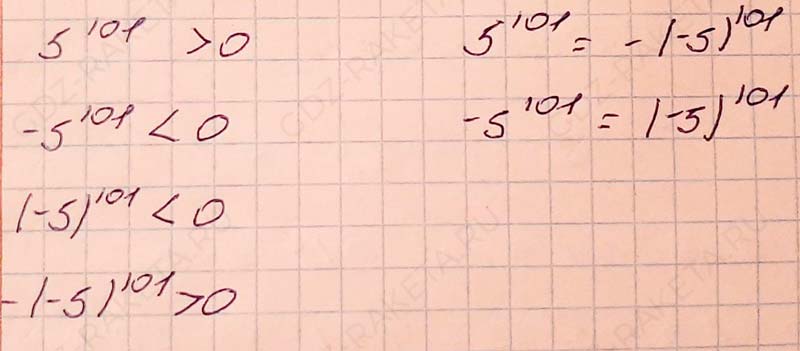 5¹⁰¹ > 0
-5¹⁰¹ < 0
(-5)¹⁰¹ < 0
-(-5)¹⁰¹ > 0
5¹⁰¹ = -(-5)¹⁰¹
-5¹⁰¹ = (-5)¹⁰¹
GDZ-RAKETA.RU